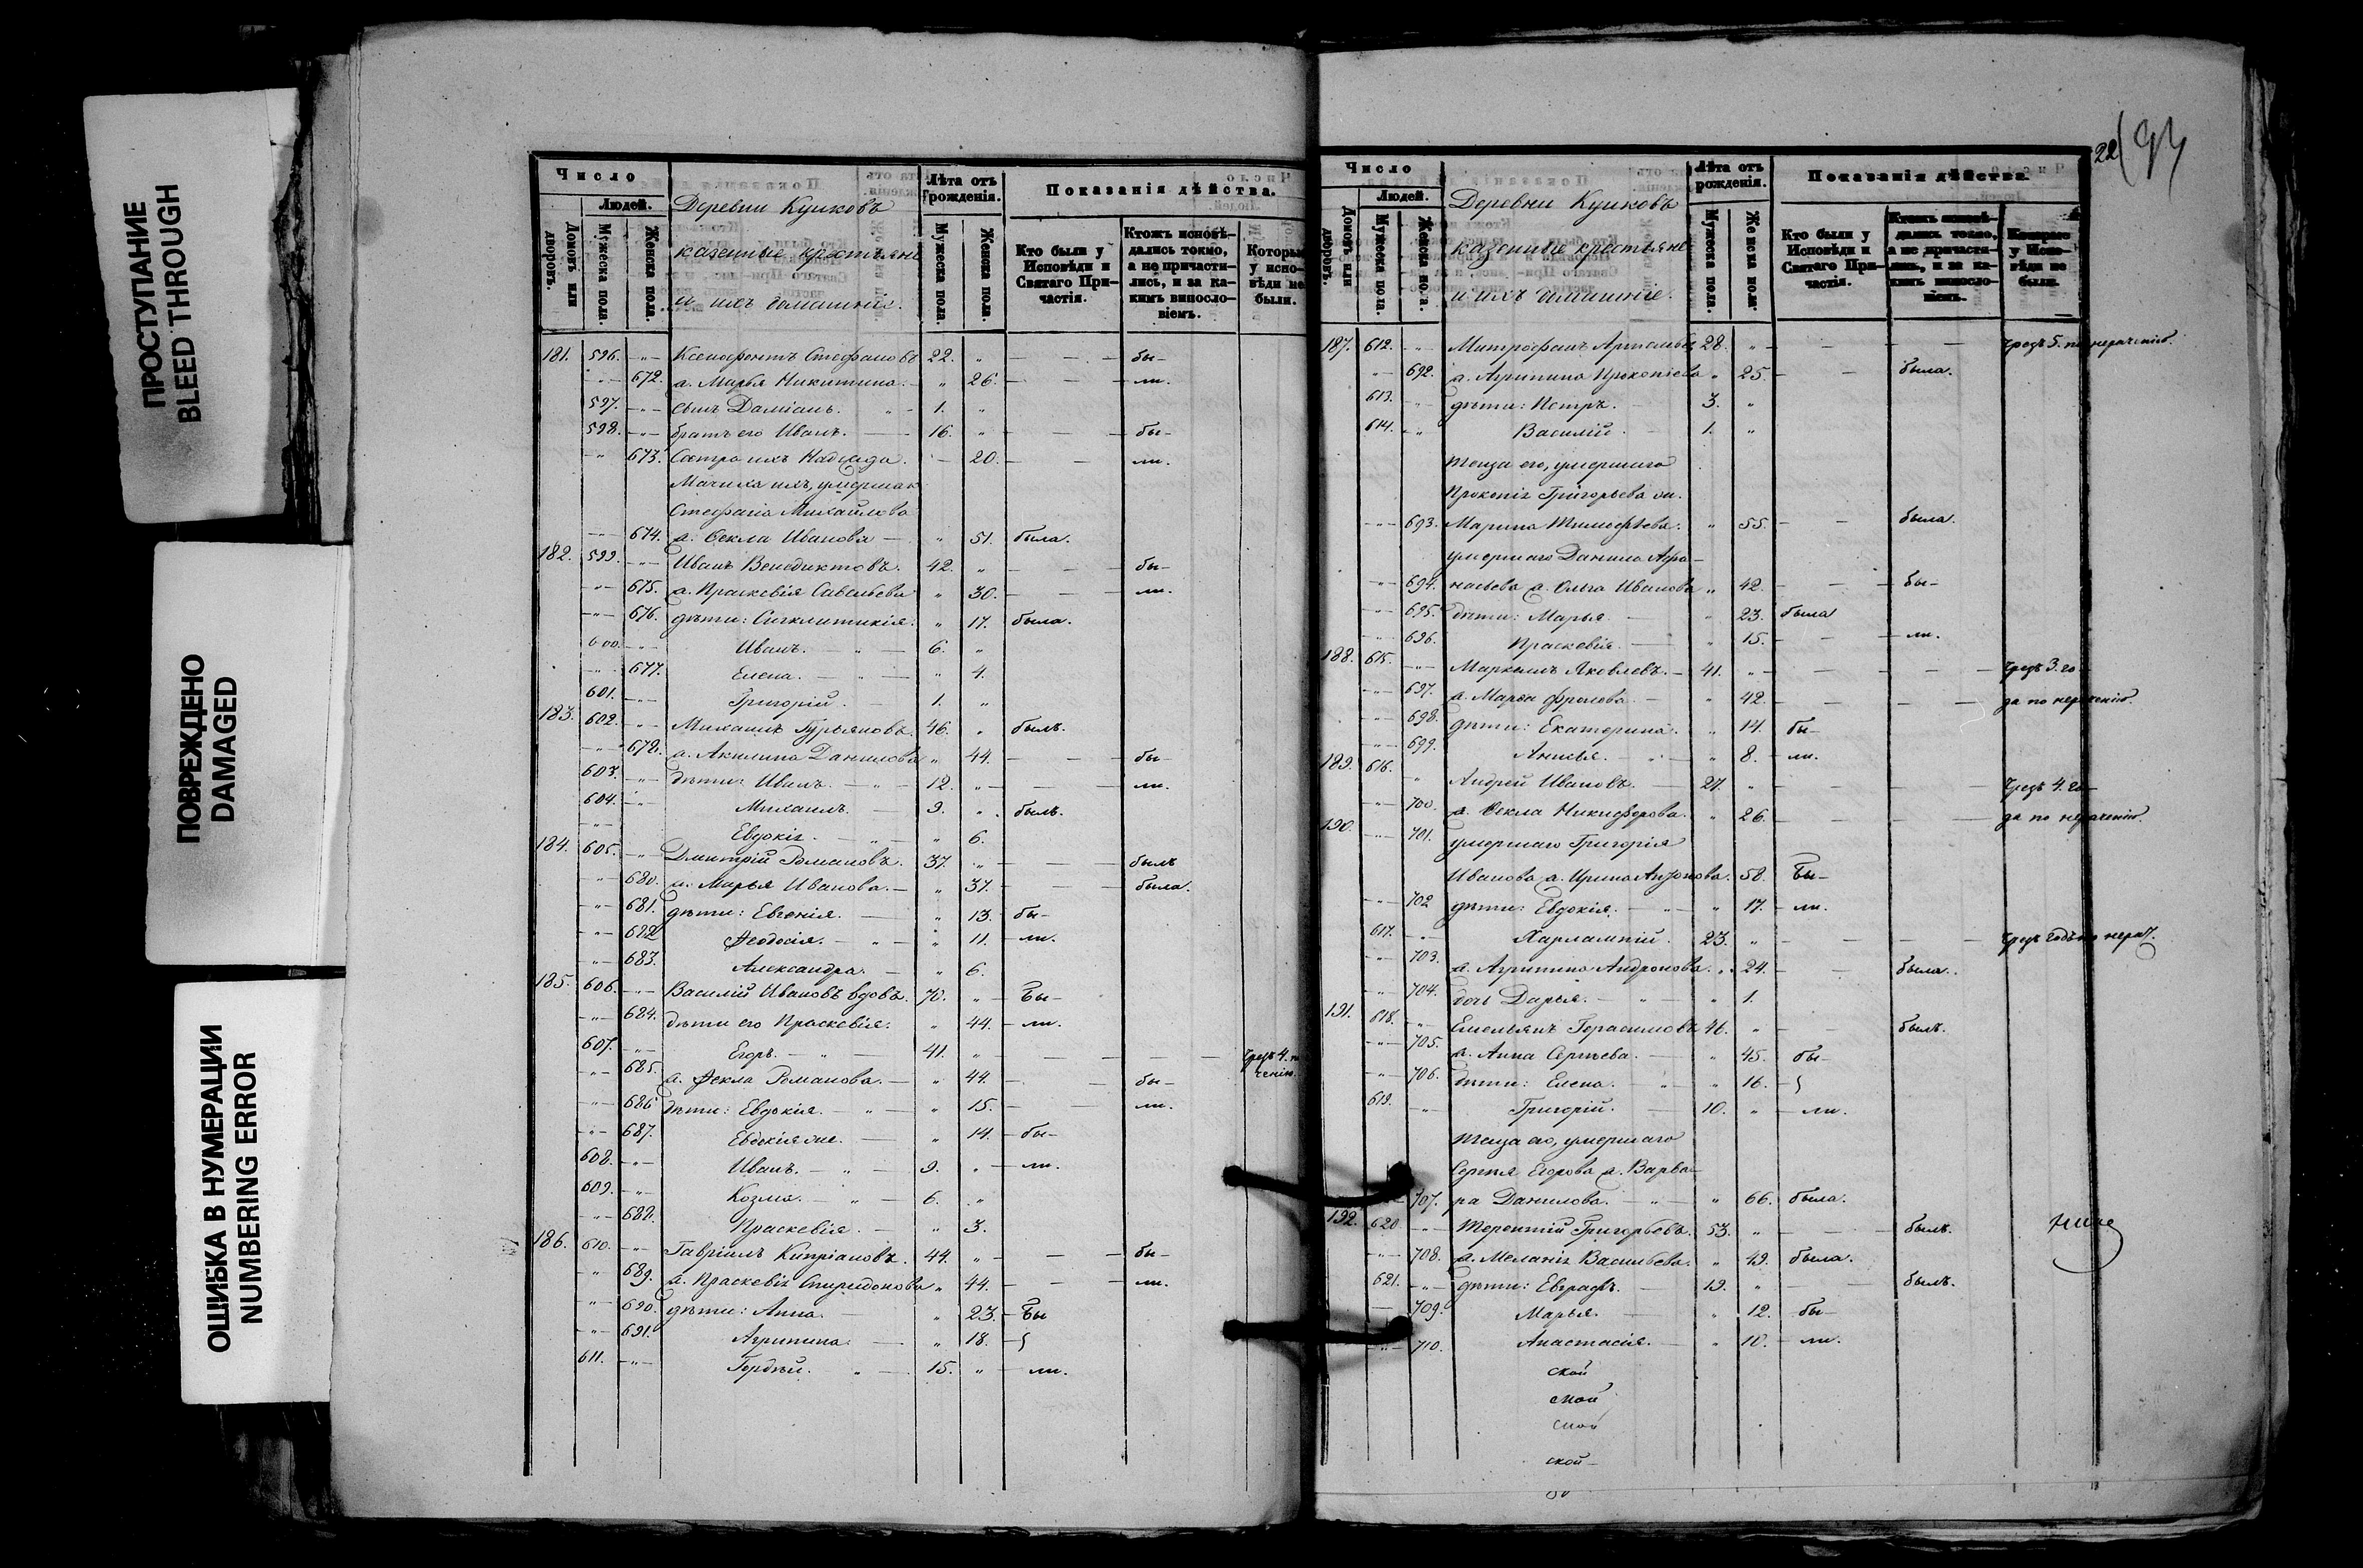 ПРОСТУПАНИЕ
BLEED THROUGH
ПОВРЕЖДЕНО
DAMAGED
ОШИБКА В НУМЕРАЦИИ
NUMBERING ERROR
Число
Людей.
Домовъ или дворовъ.
Мужеска пола.
Женска пола.
Деревни
казенные крестьяне
и ихъ домашніе.
Лѣта отъ рожденія.
Мужеска пола.
Женска пола.
Показанія дѣйства.
Кто были у Исповѣди и Святаго Причастія.
Ктожъ исповѣдались токмо, а не причастились, и за какимъ винословіемъ.
у исповѣди не были.
181. 596. —"— Ксенофонтъ Стефановъ 22. " — — — бы-
—"— 672. а. Марья Никитина. — " 26. — — — ли.
597. —"— сынъ Даміанъ. " — 1. "
598. —"— братъ его Иванъ. — 16. " — — — бы-
" 673. Сестра ихъ Надежда. — 20. — — ли.
Мачиха ихъ, умершаго
Михайлова
—"— 674. а. Ѳекла Иванова — " 51. была.
182. 599. —"— Иванъ Венедиктовъ. 42. " — — — бы-
—"— 675. а. Праскевія Савельева " 30. — — — ли.
—"— 676. дѣти: Сигклитикія. " 17. была.
600. —"— Иванъ. — " — 6. "
—"— 677. Елена. — " — " 4.
601. —"— Григорій. — 1. "
183. 602. —"— Михаилъ Гурьяновъ. 46. " былъ.
—"— 678. а. Акилина Данилова " 44. — — бы-
603. —"— дѣти: Иванъ. — " — 12. " — — — ли.
604. —"— Михаилъ. — 9. " былъ.
—"— Евдокія. — " — " 6.
184. 605. —"— Дмитрій Романовъ. 37. " — — — былъ
—"— 680. а. Марья Иванова. — " 37. — — — была.
—"— 681. дѣти: Евгенія. — " 13. — бы-
—"— 682 Ѳеодосія. — " — " 11. — ли.
—"— 683. Александра. — " 6.
185. 606. —"— Василій Ивановъ вдовъ. 70. " — Бы-
—"— 684. дѣти его Праскевія. " 44. — ли.
607. —"— Егоръ. — " — 41. " — — — — чрезъ 4.
—"— 685. а. Ѳекла Романова. — " 44. — — бы-
—"— 686 дѣти: Евдокія. — " — " 15. — — ли.
—"— 687. Евдокія же. — " 14. — бы-
608. —"— Иванъ. — " — 9. " — ли.
609. —"— Козма. — " — 6. "
—"— 688. Праскевія. — " 3.
186. 610. —"— Гавріилъ Кипріановъ. 44. " — — — бы-
" 689. а. Праскевія Спиридонова " 44. — — — ли.
—"— 690. дѣти: Анна. — " 23. — Бы
—"— 691. Агрипина. — " 18. —
611. —"— Гордѣй. " — 15. " — ли.
22
Число
Людей.
Домовъ или дворовъ.
Мужеска пола.
Женска пола.
Деревни
казенные крестьяне
и ихъ домашніе.
Лѣта отъ рожденія.
Мужеска пола.
Женска пола.
Показанія дѣйства.
Кто были у Исповѣди и Святаго Причастія.
Ктожъ исповѣдались токмо, а не причастились, и за какимъ винословіемъ.
у Исповѣди не были.
187. 612. —"— Митрофанъ 28. " — — — — чрезъ 5. по нераченію.
—"— 692. а. Агрипина Прокопіева " 25. — — была.
613. —"— дѣти: Петръ. — 3. "
614. —"— Василій. — 1. "
теща его, умершаго
Прокопія Григорьева ж.
—"— 693. Марина Тимофѣева. " 55. — — была.
умершаго Данила Афа-
—"— 694. насьева а. Ольга Иванова " 42. — — бы-
—"— 695. дѣти: Марья. — " 23. была
—"— 696. Праскевія. — " 15. — — ли.
188. 615. —"— Маркелъ Яковлевъ. — 41. " — — — — чрезъ 3. го-
—"— 697. а. Марѳа Фролова. — " 42. — — — да по нераченію.
—"— 698. дѣти: Екатерина. " 14. бы-
—"— 699. — " — " 8. — ли.
189. 616. " Андрей Ивановъ. — 27. " — — — — Чрезъ 4. го-
—"— 700. а. Ѳекла Никифорова. " 26. — — — да по нераченію.
190. —"— 701. умершаго Григорія
Иванова а. Ирина 58. Бы-
—"— 702 дѣти: Евдокія. — " — " 17. — ли.
617. —"— Харлампій. 23. " — — — — чрезъ годъ по нерач.
—"— 703. а. Агрипина Андронова. " 24. — — была.
—"— 704. дочь Дарья. — " — " 1.
191. 618. —"— Емельянъ Герасимовъ 46. " — — былъ.
—"— 705. а. Анна Сергѣева. — " 45. бы-
—"— 706. дѣти: Елена. — " — " 16. —
619. —"— Григорій. — 10. " — ли.
теща его, умершаго
Сергѣя Егорова а. Варва-
707. ра Данилова. — " — " 66. была.
192. 620 —"— Терентій Григорьевъ. 53. " — — былъ.
—"— 708. а. Меланія Васильева. " 49. была.
621. —"— дѣти: Евграфъ. — 19. " — — былъ.
— 709. Марья. — " 12. бы-
—"— 710. Анастасія. — " 10. — ли.